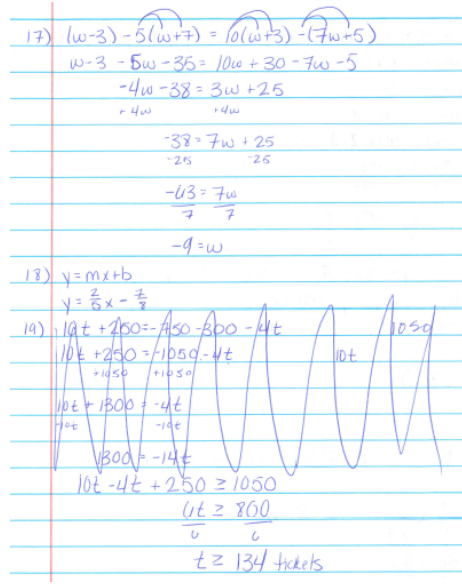 17) (w-3) -5(w+7) = 10(w+3) -(7w+5)
w-3 -5w-35 = 10w + 30 -7w -5
-4w -38 = 3w +25
+4w +4w
-38 = 7w + 25
-25 -25
-63 = 7w
7 7
-9 = w
18) y = mx+b
y = 2/5 x - 7/8
19) 10t +250 = -750 -300 -4t
10t +250 = -1050 -4t
+1050 +1050
10t + 1300 = -4t
-10t -10t
1300 = -14t
1050
10t
10t -4t + 250 ≥ 1050
6t ≥ 800
6 6
t ≥ 134 tickets